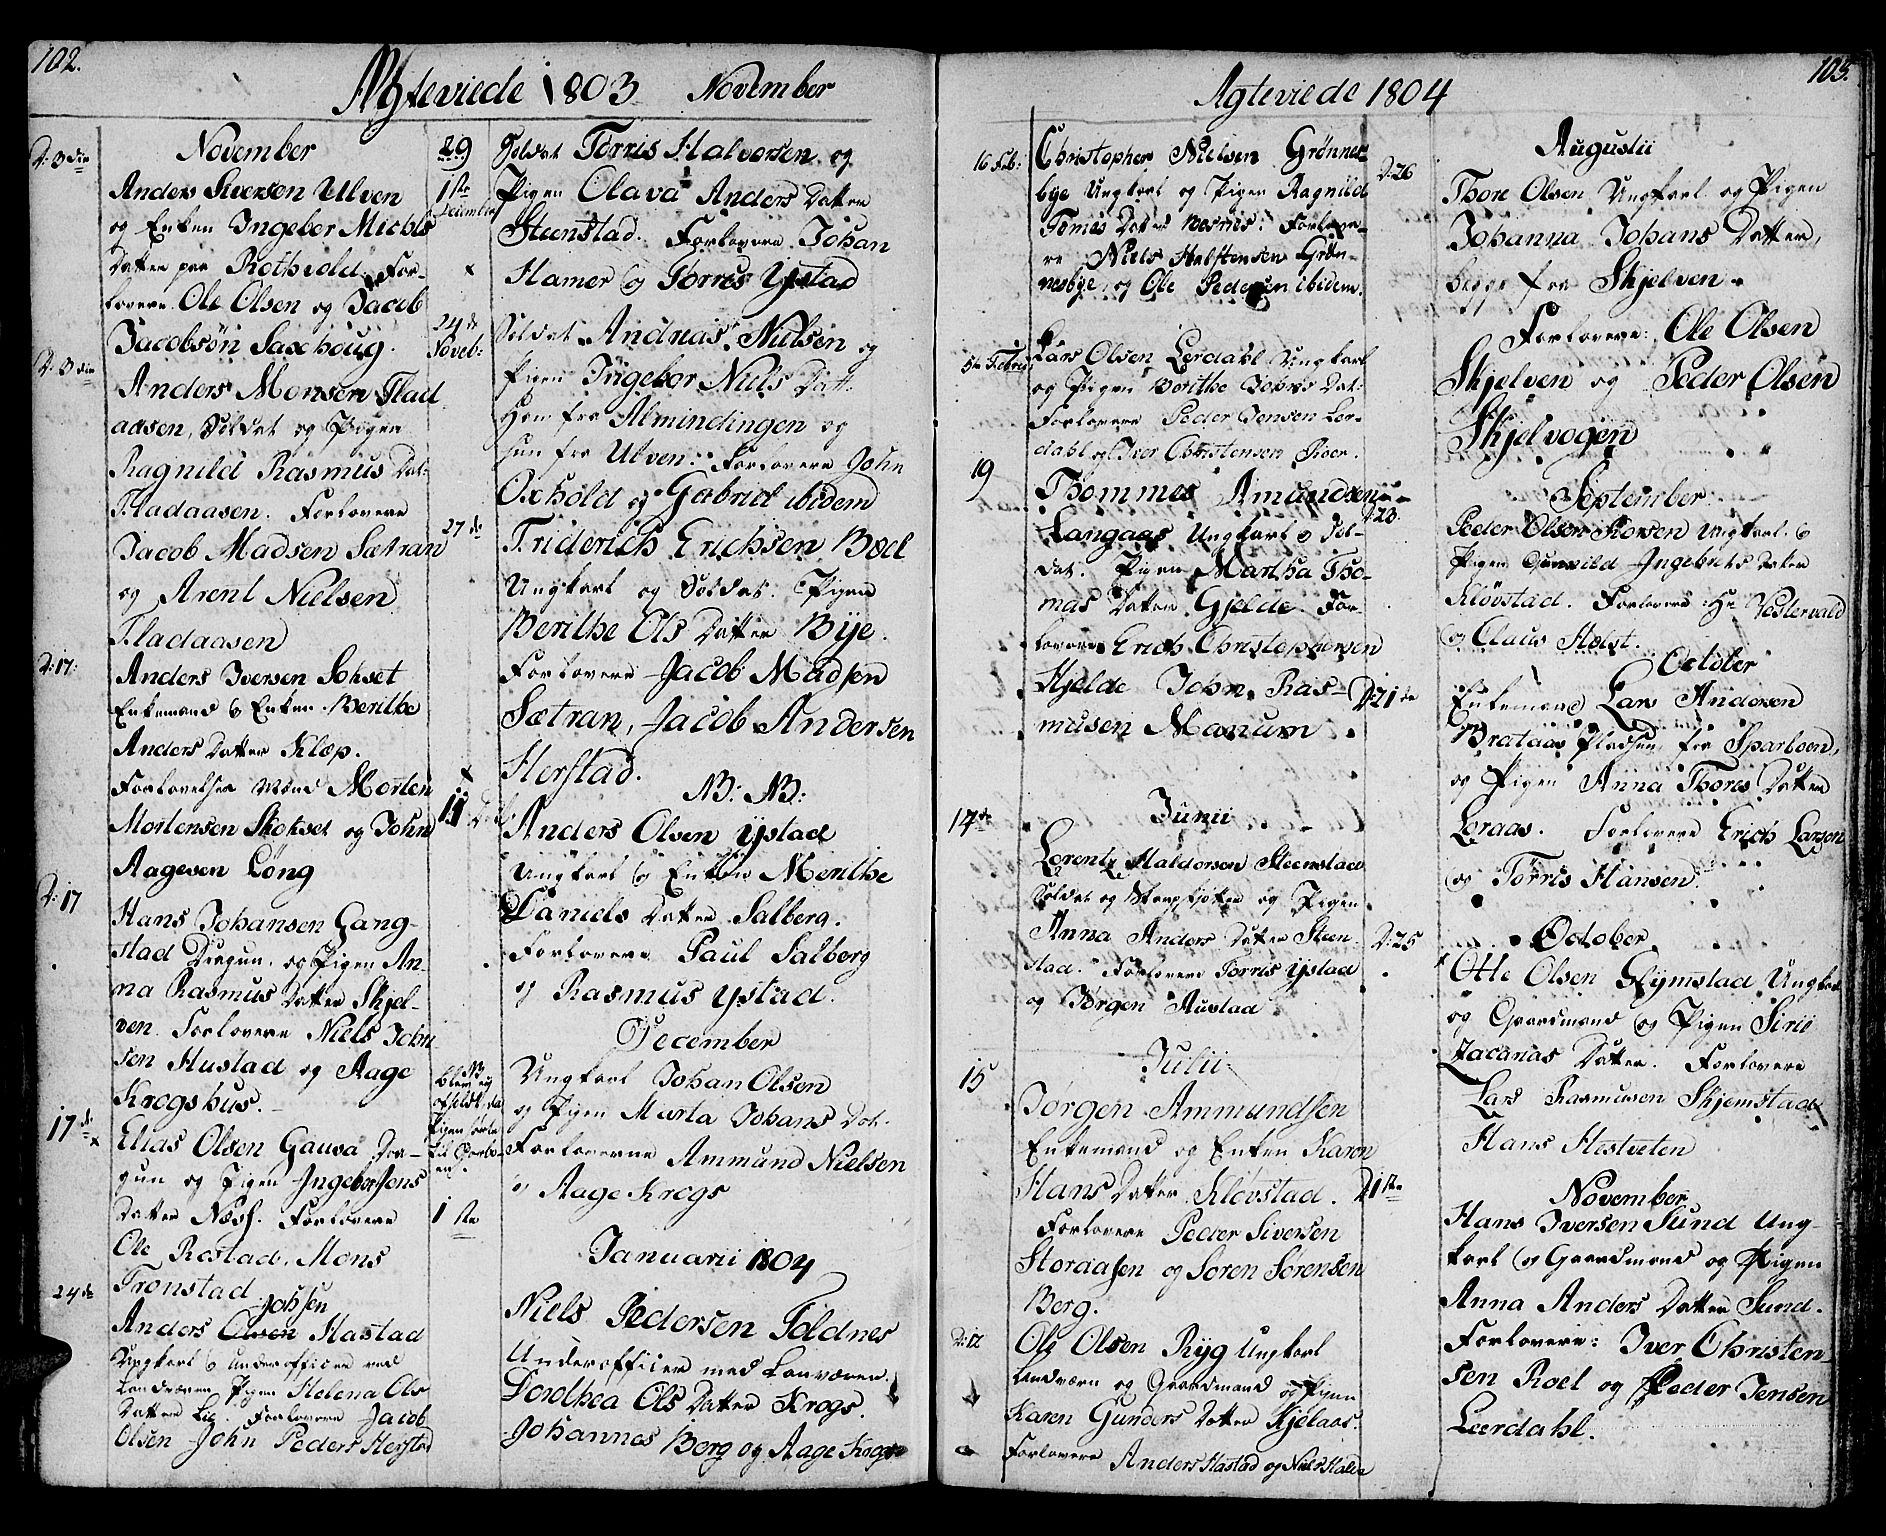 102.
Ægteviede 1803 November
November
D: 3die
Anders Siversen Ulven
og Enken Ingebor Michls
Datter paa Rothvold. For-
lovere Ole Olsen og Jacob
Jacobsøn Saxhoug.
D. 3die
Anders Monsen Flad
aasen, Soldat og Pigen
Ragnild Rasmus Dat:
Fladaasen. Forlovere
Jacob Madsen Sætran
og Arent Nielsen
Fladaasen
D: 17:
Anders Iversen Sohset
Enkemand & Enken Berithe
Anders Datter Klæp.
Forlovelses Mænd Morten
Mortensen Skohset og John
Aagesen Løng
D: 17
Hans Johansen Gang-
stad Dragun. og Pigen An-
na Rasmus Datter Skjel-
ven. Forlovere Niels John
sen Hustad og Aage
Krogshus.
17de
Elias Olsen Gausa Dra-
gun og Pigen Ingebor Jens
Datter Næss. Forlovere
Ole Rostad. Mons
Tronstad
24de
Johsen
Anders Olsen Hastad
Ungkarl & Underofficer ved
Landværn Pigen Helena Ols
Datter Lie. Forlovere Jacob
Olsen John Peders Herstad
29
Soldat Torris Halvorsen og
1ste December
Pigen Olava Anders Datter
Steenstad. Forlovere Johan
Hamer & Torris Ystad
24de Noveb:
Soldat Andreas Nielsen og
Pigen Ingebor Niels Dat:
Han fra Almindingen og
hun fra Ulven. Forlovere John
Oxhold og Gabriel ibidem
27de
Friderich Erichsen Bæel
Ungkarl og Soldat. Pigen
Berithe Ols Datter Bije.
Forlovere Jacob Madsen
Sætran, Jacob Andersen
Herstad.
NB: NB:
11 Dec
Anders Olsen Ystad
Ungkarl & Enken Merithe
Daniels Datter Salberg.
Forlovere Paul Salberg
og Rasmus Ystad.
December
NB
blev ej
Pigen
Ungkarl Johan Olsen
og Pigen Marta Johans Dat.
Forloverne Ammund Nielsen
og Aage Krogs
1ste
Januarii 1804
Niels Pedersen Foldnes
Underofficer med Lanværn.
Dordhea Ols Datter Krogs.
Johannes Berg og Aage Krogs
103.
Ægteviede 1804
16 Feb:
Christopher Nielsen Grønnes-
bye Ungkarl og Pigen Ragnild
Tomas Datter Næsnes. Forlove-
re Niels Halstensen Grøn-
nesbye og Ole Pedersen ibidem
5te Februar
Lars Olsen Lerdahl Ungkarl
og Pigen Berithe Dat:
Forlovere Peder Jensen Ler-
dahl og Iver Christensen Roer.
19
Thommes Amundsen
Langaas Ungkarl & Sol-
dat. Pigen Martha Tho-
mas Datter Gjelde For-
lovere Erich Christophersen
Hjelde John Ras-
musen Manum
Junii
14de
Lorentz Haldorsen Steenstad
Soldat og Skarpskytter og Pigen
Anna Anders Datter Steen-
stad. Forlovere Torris Ystad
og Jørgen Austad
Julii
15
Jørgen Ammundsen
Enkemand og Enken Karen
Hans Datter Kløvstad.
Forlovere Peder Siversen
Storaasen og Soren Sørensen
Berg.
D: 12
Ole Olsen Ryg Ungkarl
Landværn og Gaardmand og Pigen
Karen Gunders Datter Kjelaas.
Forlovere Anders Hastad og Niels Halden
Augustii
D: 26
Thore Olsen Ungkarl og Pigen
Johanna Johans Datter,
begge fra Skjelven.
Forlovere: Ole Olsen
Skjelven og Peder Olsen
Skjelvogen
September
D: 23.
Peder Olsen Korsen Ungkarl &
Pigen Gunnild Ingebrets Datter
Kløvstad. Forlovere Hr Vestervald
og Claus Holst.
October
D: 21de
Enkemand Lars Andersen
Brataas Pladsen fra Sparboen,
og Pigen Anna Thores Datter
Loraas. Forlovere Erich Larsen
og Tørris Hansen
October
D: 25
Otte Olsen Glymstad Ungkarl
og Gaardmand og Pigen Sirii
Zacarias Datter. Forlovere
Lars Rasmusen Skjemstad
Hans Hestveten
November
D 1ste
Hans Iversen Sund Ung-
karl og Gaardmand og Pigen
Anna Anders Datter Sund.
Forlovere: Iver Christen-
sen Roel og Peder Jensen
Leerdahl.